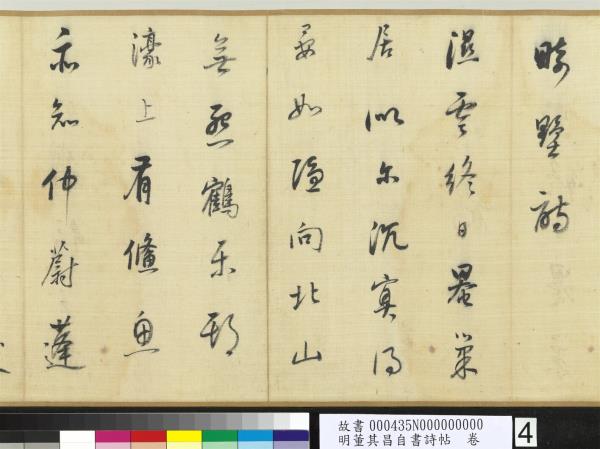 畸墅詩
濕雲終日罨巢
居似尔沉冥得
晏如隱向北山
無怨鶴樂
濠上有儵魚
亦知仲蔚蓬
故書 000435N000000000
明董其昌自書詩帖 卷
4